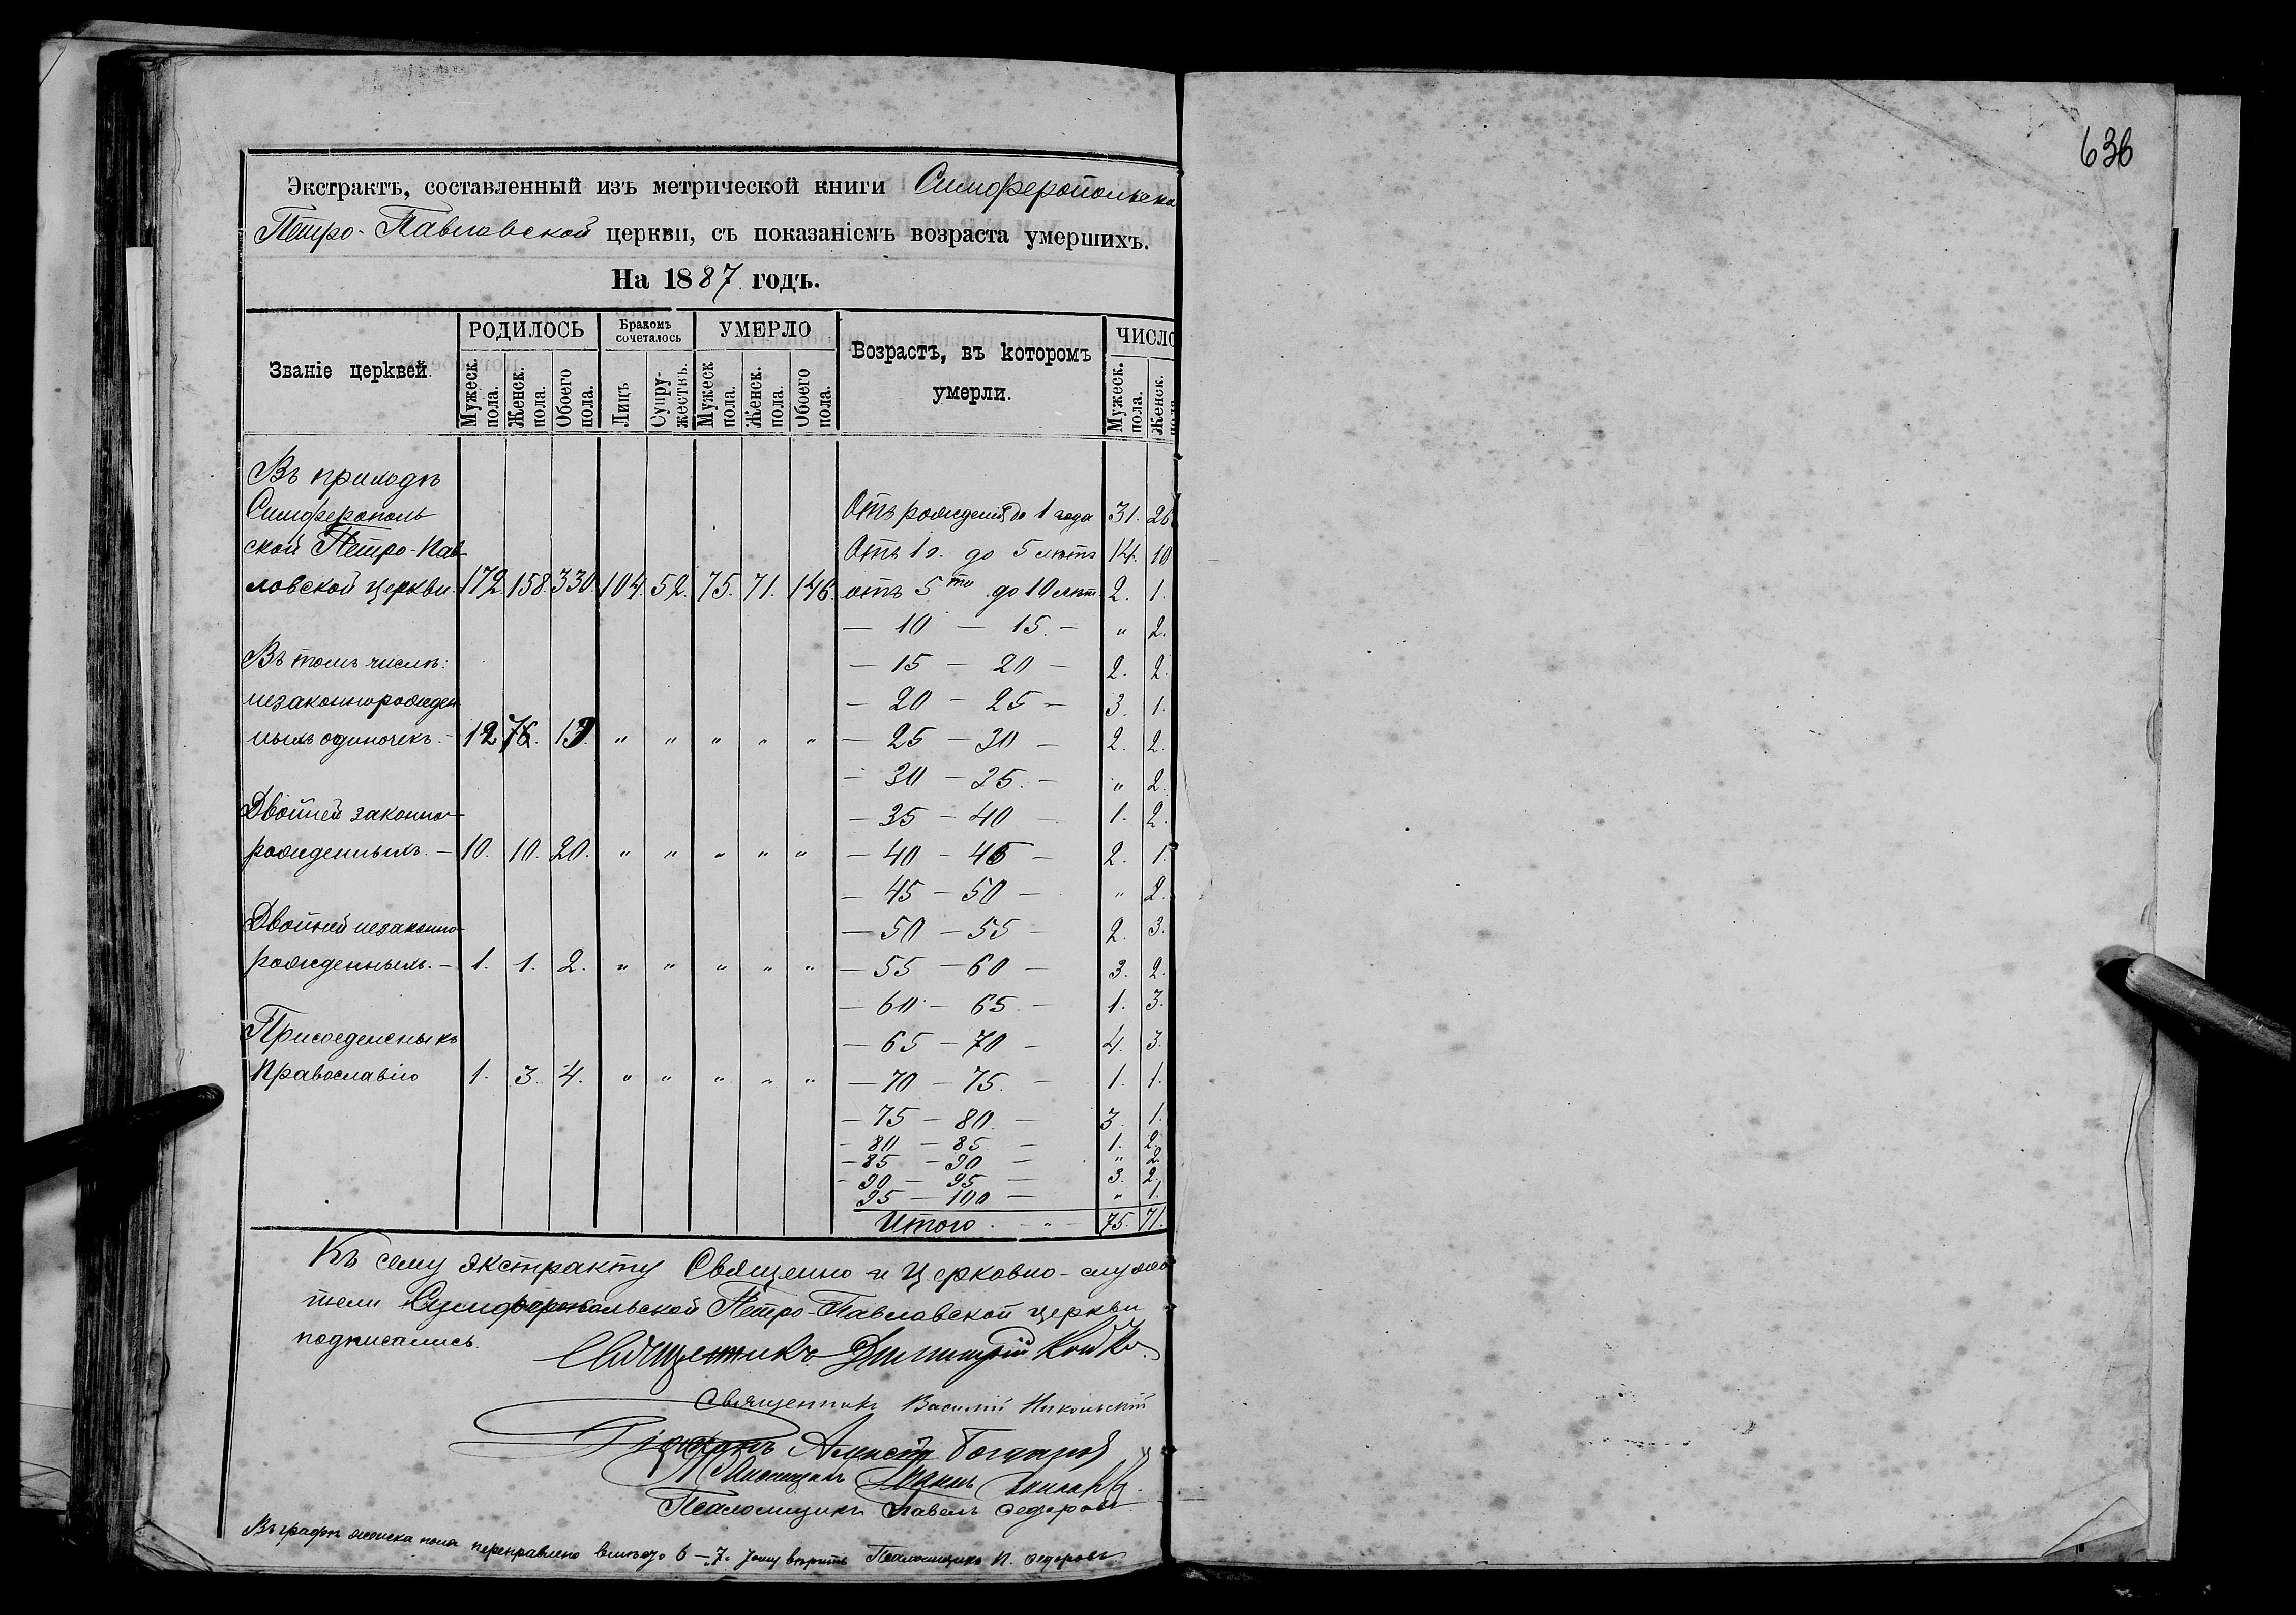 636
Экстрактъ, составленный изъ метрической книги Симферопольской
Петро-Павловской церкви, съ показаніемъ возраста умершихъ.
На 1887 годъ.
Званіе церквей.
РОДИЛОСЬ
Бракомъ сочеталось
УМЕРЛО
Возрастъ, въ которомъ умерли.
ЧИСЛО
Мужеск. пола.
Женск. пола.
Обоего пола.
Лицъ
Супру-жествъ.
Мужеск пола.
Женск. пола.
Обоего пола.
Мужеск. пола.
Женск. пола
Въ приходѣ
Симферополь
ской Петро-Пав
ловской церкви. 172. 158. 330. 104. 52. 75. 71. 146.
Въ томъ числѣ:
незаконнорожден
ныхъ одиночекъ. – 12 7. 19. " " " " "
Двойней законно-
рожденныхъ. – 10. 10. 20. " " " " "
Двойней незаконно-
рожденныхъ. – 1. 1. 2. " " " " "
Присоединеныхъ
Православію 1. 3. 4. " " " " "
Отъ рожденія до 1 года 31. 26
Отъ 1 г. до 5 лѣтъ 14. 10
отъ 5ти до 10 лѣт. 2. 1.
– 10 – 15. – " 2.
– 15 – 20 – 2. 2.
– 20 – 25 – 3. 1.
– 25 – 30 – 2. 2.
– 30 – 35. – " 2.
– 35 – 40 – 1. 2.
– 40 – 45 – 2. 1.
– 45 – 50 – " 2.
– 50 – 55 – 2. 3.
– 55 – 60 – 3. 2.
– 60 – 65. – 1. 3.
– 65 – 70 – 4. 3.
– 70 – 75. – 1. 1.
– 75 – 80. – 3. 1.
– 80 – 85 – 1. 2.
– 85 – 90 – " 2.
– 90 – 95 – 3. 2.
95 – 100 – " 1.
Итого. – " – 75. 71.
Къ сему экстракту Священно и Церковно-служи
тели Симферопольской Петро-Павловской церкви
подписались.
Священникъ Димитрій Койко.
Священникъ Василій Никольскій
Діаконъ
Псаломщикъ Іоаннъ
Псаломщикъ Павелъ Федоровъ
Въ графѣ женска пола переправлено вмѣсто 6 – „7. тому вѣрить Псаломщикъ П. Федоровъ